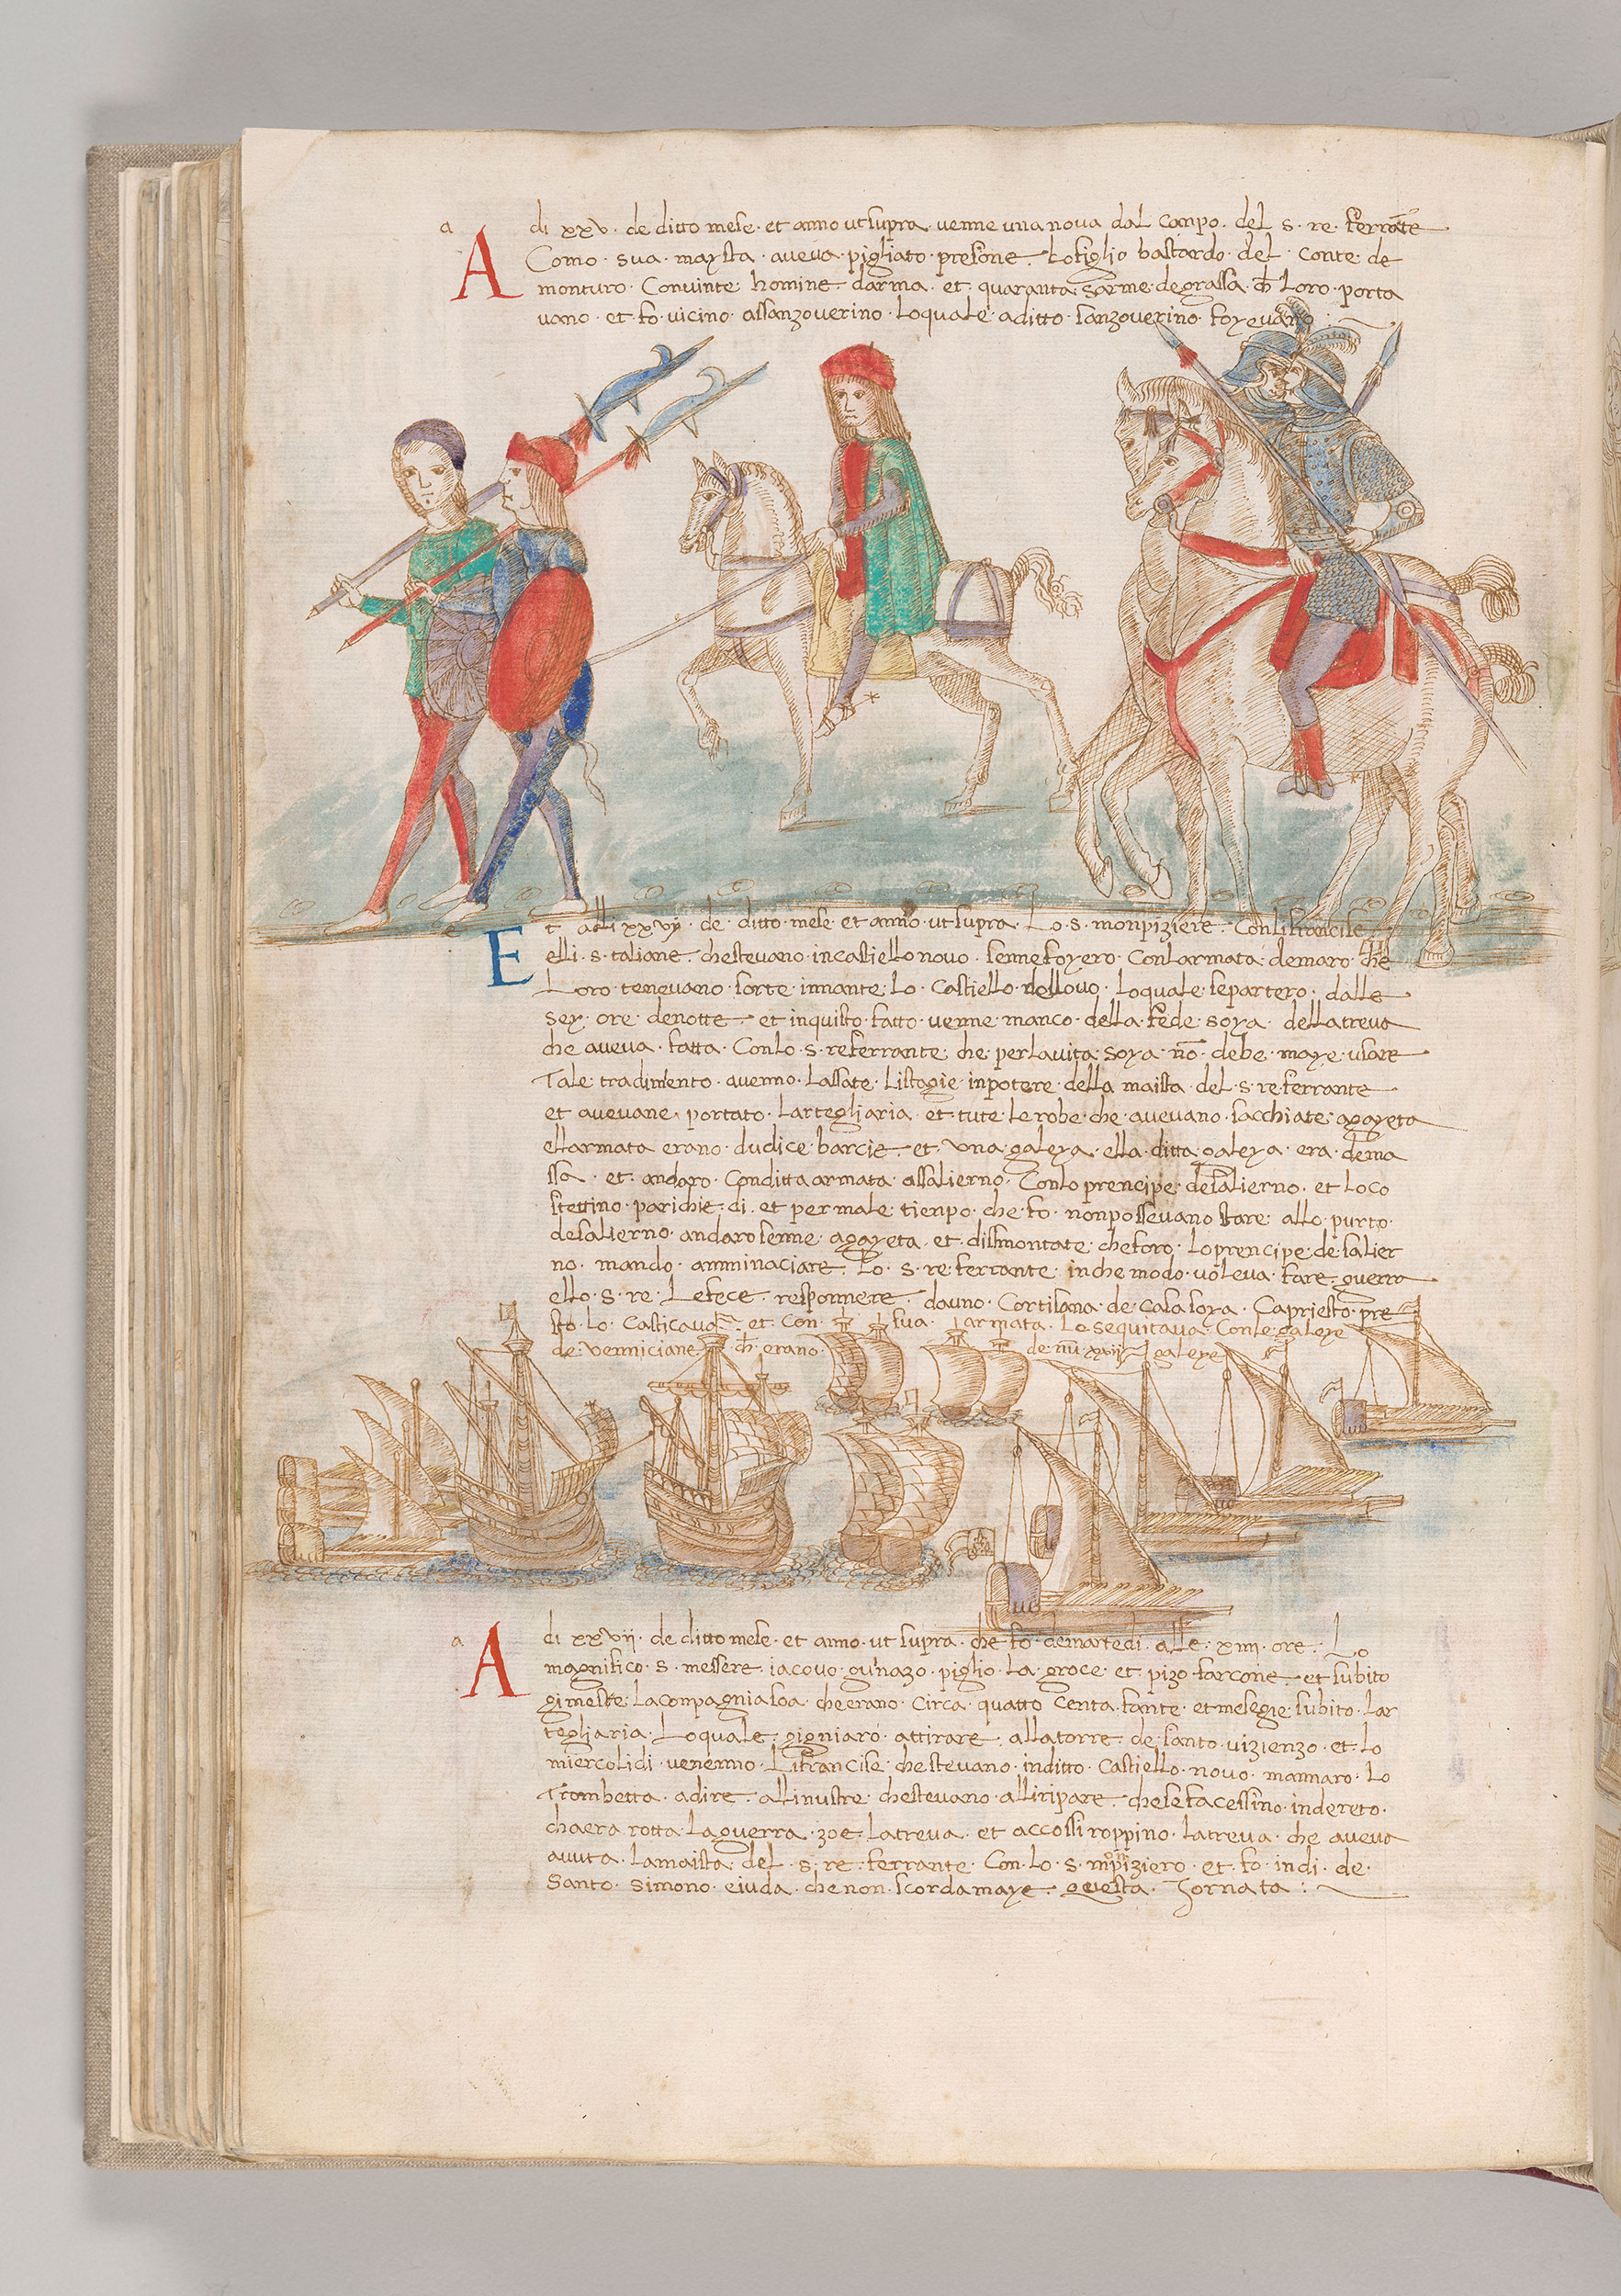 a
A di xxv · de ditto mese · et anno ut supra · venne una nova dal Canpo · del · s · re · ferrãte
Como · sua · maysta · aveva · pigliato · presone · Lo figlio bastardo · del · Conte · de
monturo · Con vinte · homine · darma · et · quaranta · sarme · de grassa · ch̃ · Loro · porta
vano · et · fo · vicino · assanzoverino · Lo quale · a ditto · sanzoverino · foy
Et alli xxvij · de · ditto · mese · et anno · ut supra · Lo · s · monpiziere · Con li francise
elli · s · taliane · che stevano · in castiello novo · senne foyero · Con larmata · de maro · che
Loro · tenevano · sorte · innante · Lo · Castiello · dellovo · Lo quale · se partero · dalle
sey · ore · de notte · et in quisto · fatto · venne · manco · della · fede · soya · della treva
che aveva · fatta · Con lo · s · re ferrante · che · per la vita · soya · nõ · debe · maye · usare
Tale · tradimento · avenno · Lassate · Li stagie · in potere · della maista · del · s · re ferrante
et avevane · portato · Lartegliaria · et · tute · Le robe · che · avevano · sacchiate · agayeta
ellarmata erano · dudice · barcie · et · una · galeya · ella · ditta · galeya · era · de ma
ssa · et · andaro · Con ditta armata · assalierno · Con lo prencipe · de salierno · et Loco
stettino · parichie · di · et per male · tienpo · che · fo · non possevano stare · allo · purto ·
de salierno · andaro senne · agayeta · et · dissmontate · che foro · Lo prencipe · de salier
no · mando · amminaciare · Lo · s · re ferrante · in che modo · voleva · fare · guerra
ello · s · re · Le fece · responnere · dauno · Cortisana · de · casa soya · Capriesto · pre
sto · Lo · Casticava · et · Con · sua · armata · Lo sequitava · Con le · galeye
de · veniciane · ch̃ · erano · de nũ xxvij galeye
a
A di xxvii · de ditto mese · et anno · ut supra · che · fo · de martedi · alle · xiiii · ore · Lo
magnifico · s · messere · iacovo · gu'nazo · piglio · La · groce · et · pizo farcone · et subito
gi mesfe · La conpagnia soa · che erano · Circa · quatto · Centa · fante · et mese gie · subito · Lar
tegliaria · Lo quale · gigniaro · attirare · alla torre · de · santo · vizienzo · et · Lo
miercolidi · venenno · Li francise · che stevano · in ditto · Castiello · novo · mannaro · Lo
Trombetta · a dire · alli nustre · che stevano · alli ripare · che se facessino · in dereto ·
cha era rotta · La guerra · zoe · La treva · et accossi roppino · La treva · che aveva
avuta · La maista · del · s · re · ferrante · Con · Lo · s · mõpiziero · et · fo · in di · de ·
Santo · Simono · eiuda · che non · scorda maye · questa · Jornata :